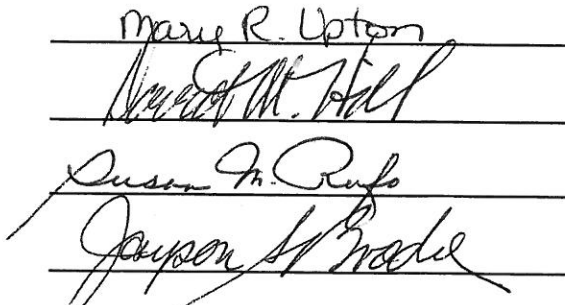 Mary R. Upton
M. Hill
Susan M. Rufo
Jayson S. Brodie